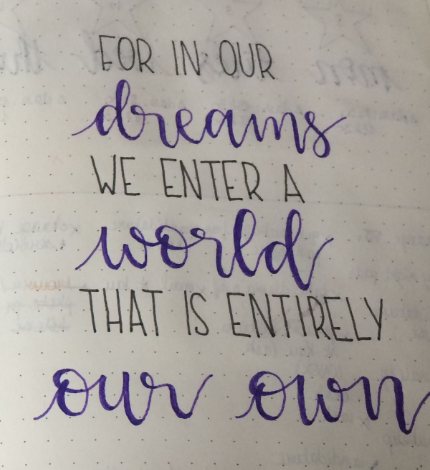 FOR IN OUR
dreams
WE ENTER A
world
THAT IS ENTIRELY
our own